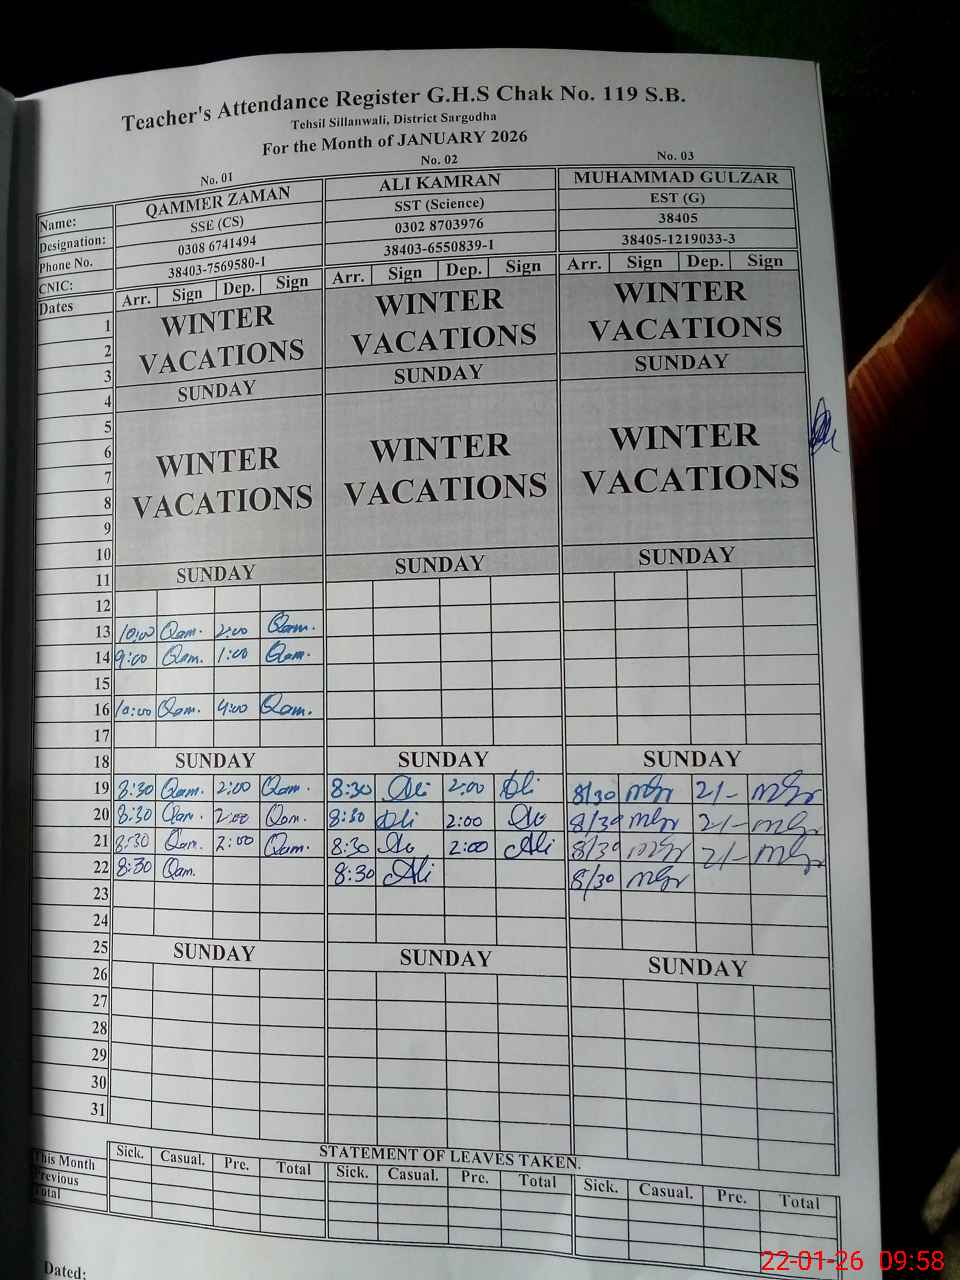 Teacher's Attendance Register G.H.S Chak No. 119 S.B.
Tehsil Sillanwali, District Sargodha
For the Month of JANUARY 2026
No. 01 No. 02 No. 03
Name: QAMMER ZAMAN ALI KAMRAN MUHAMMAD GULZAR
Designation: SSE (CS) SST (Science) EST (G)
Phone No. 0308 6741494 0302 8703976 38405
CNIC: 38403-7569580-1 38403-6550839-1 38405-1219033-3
Dates Arr. Sign Dep. Sign Arr. Sign Dep. Sign Arr. Sign Dep. Sign
1 WINTER WINTER WINTER
2 VACATIONS VACATIONS VACATIONS
3
4 SUNDAY SUNDAY SUNDAY
5
6
7 WINTER WINTER WINTER
8 VACATIONS VACATIONS VACATIONS
9
10
11 SUNDAY SUNDAY SUNDAY
12
13 10:00 Qam. 2:00 Qam.
14 9:00 Qam. 1:00 Qam.
15
16 10:00 Qam. 4:00 Qam.
17
18 SUNDAY SUNDAY SUNDAY
19 8:30 Qam. 2:00 Qam. 8:30 Ali 2:00 Ali 8/30 2/-
20 8:30 Qam. 2:00 Qam. 8:30 Ali 2:00 Ali 8/30 2/-
21 8:30 Qam. 2:00 Qam. 8:30 Ali 2:00 Ali 8/30 2/-
22 8:30 Qam. 8:30 Ali 8/30
23
24
25 SUNDAY SUNDAY SUNDAY
26
27
28
29
30
31
STATEMENT OF LEAVES TAKEN.
Sick. Casual. Pre. Total Sick. Casual. Pre. Total Sick. Casual. Pre. Total
This Month
Previous
Total
Dated:
22-01-26 09:58